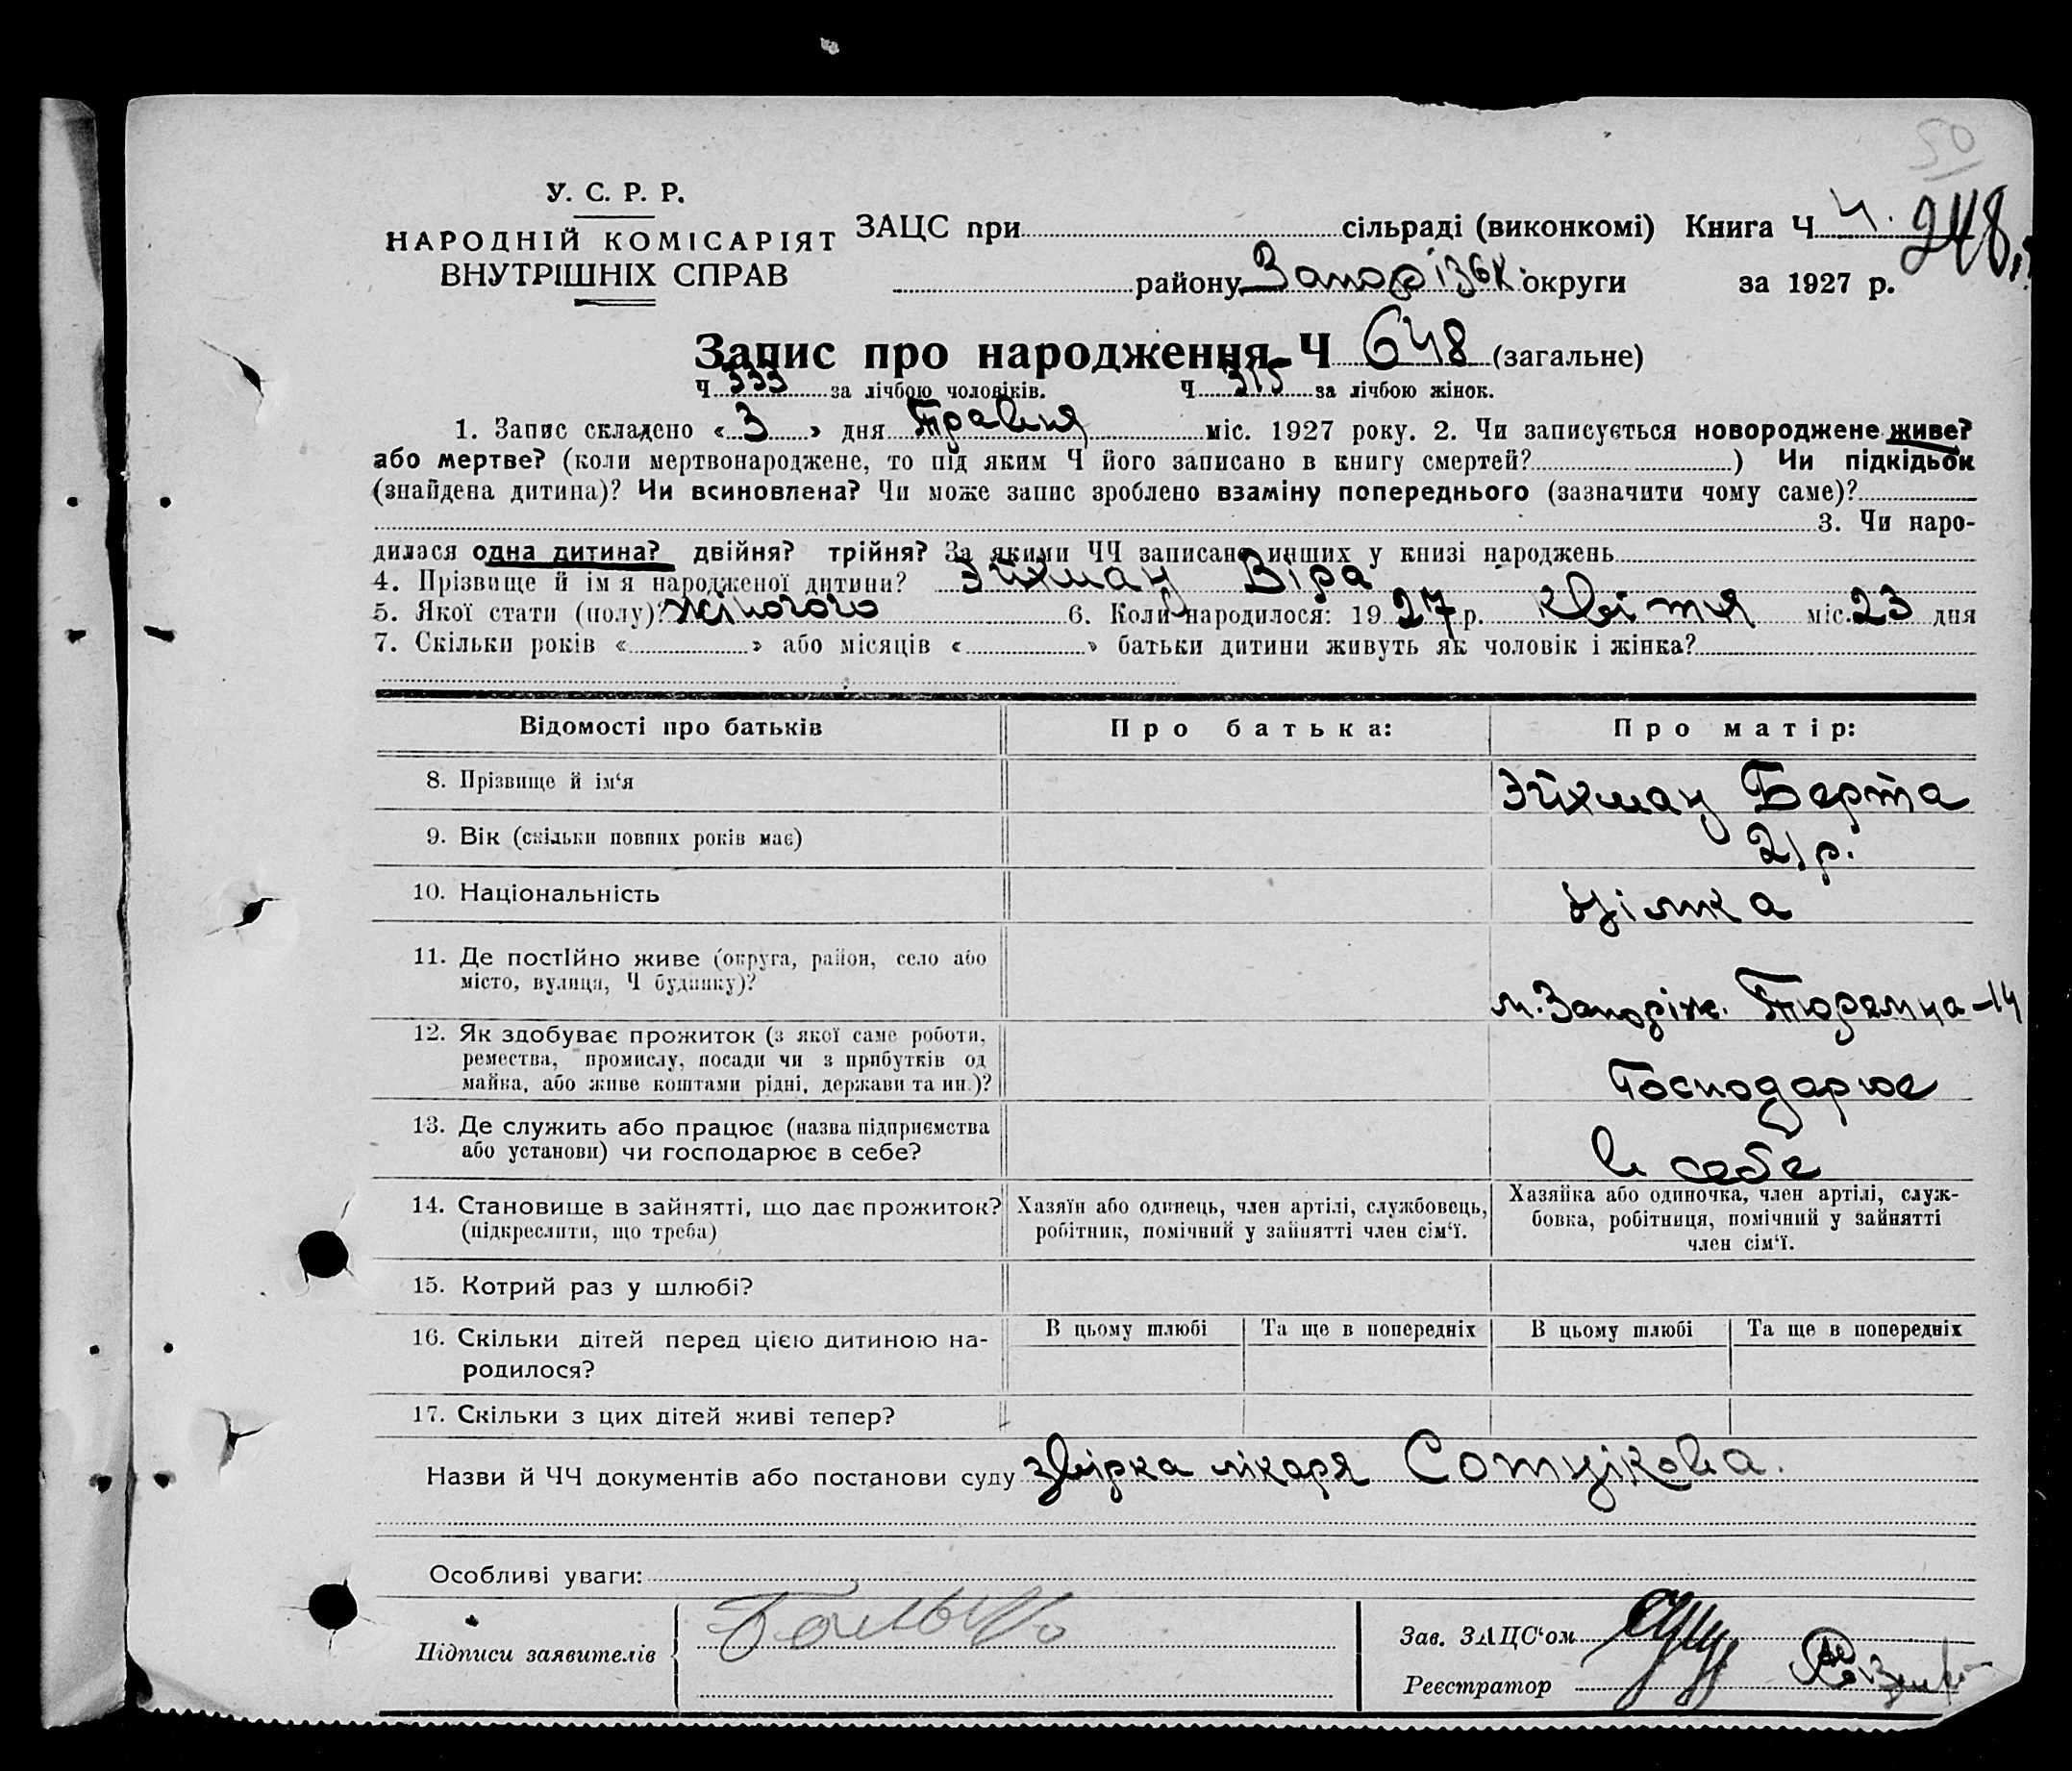 50
У. С. Р. Р.
НАРОДНІЙ КОМІСАРІЯТ
ВНУТРІШНІХ СПРАВ
ЗАЦС при сільраді (виконкомі) Книга Ч 4. 248
району Запорізьк. округи за 1927 р.
Запис про народження Ч 648 (загальне)
Ч 333 за лічбою чоловіків. Ч 315 за лічбою жінок.
1. Запис складено «3» дня Травня міс. 1927 року. 2. Чи записується новороджене живе?
або мертве? (коли мертвонароджене, то під яким Ч його записано в книгу смертей? ) Чи підкідьок
(знайдена дитина)? Чи всиновлена? Чи може запис зроблено взаміну попереднього (зазначити чому саме)?
3. Чи наро-
дилася одна дитина? двійня? трійня? За якими ЧЧ записано инших у книзі народжень
4. Прізвище й ім'я народженої дитини? Эйхман Віра
5. Якої стати (полу)? жіночого 6. Коли народилося: 1927 р. Квітня міс. 23 дня
7. Скільки років « » або місяців « » батьки дитини живуть як чоловік і жінка?
Відомості про батьків Про батька: Про матір:
8. Прізвище й ім'я Эйхман Берта
9. Вік (скільки повних років має) 21 р.
10. Національність Німка
11. Де постійно живе (округа, район, село або
місто, вулиця, Ч будинку)? м. Запоріж. Тюремна-14
12. Як здобуває прожиток (з якої саме роботи,
ремества, промислу, посади чи з прибутків од
майна, або живе коштами рідні, держави та ин.)? Господарює
13. Де служить або працює (назва підприємства
або установи) чи господарює в себе? в себе
14. Становище в зайнятті, що дає прожиток?
(підкреслити, що треба)
Хазяїн або одинець, член артілі, службовець,
робітник, помічний у зайнятті член сім'ї.
Хазяйка або одиночка, член артілі, служ-
бовка, робітниця, помічний у зайнятті
член сім'ї.
15. Котрий раз у шлюбі?
16. Скільки дітей перед цією дитиною на-
родилося?
В цьому шлюбі Та ще в попередніх В цьому шлюбі Та ще в попередніх
17. Скільки з цих дітей живі тепер?
Назви й ЧЧ документів або постанови суду лікаря
Особливі уваги:
Підписи заявителів
Зав. ЗАЦС'ом
Реєстратор